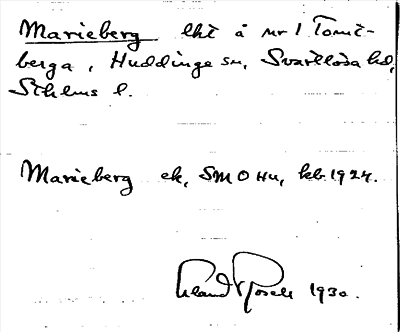 Marieberg lht å nr 1 Tomt-
berga, Huddinge sn, Svartlösa hd,
Sthlms l.
Marieberg ek, SMOHu, kb 1924.
1930.